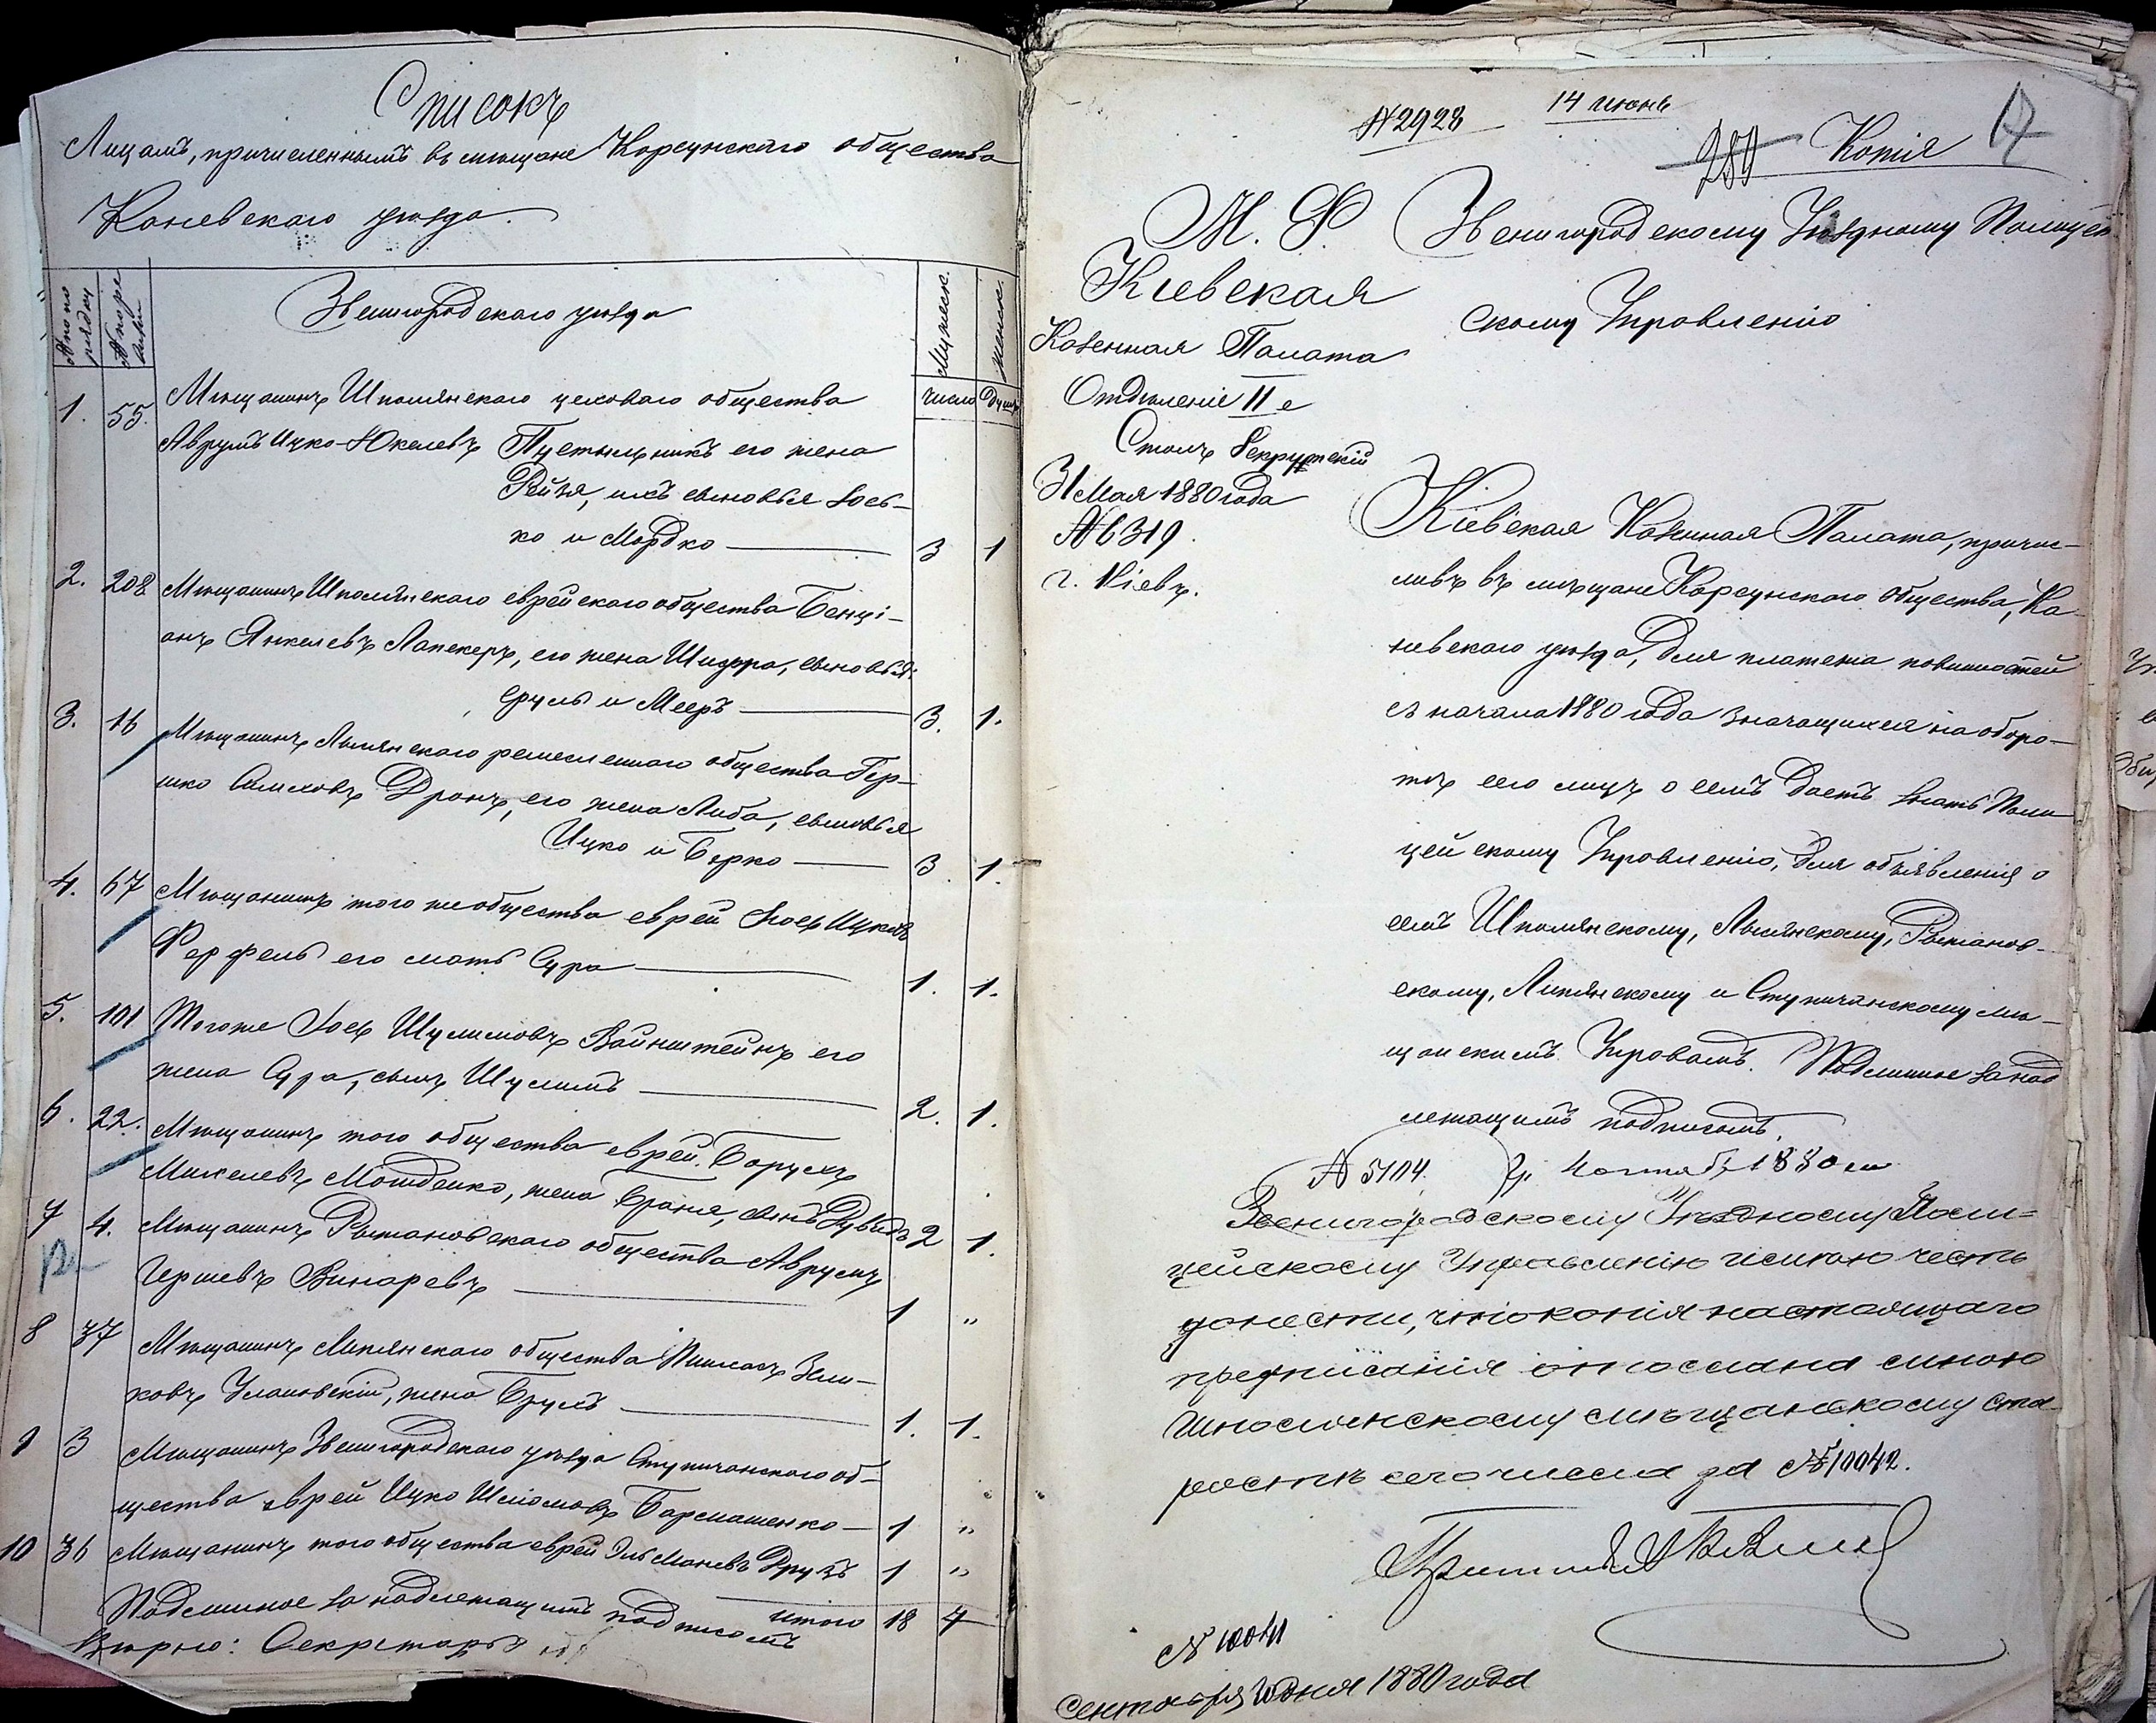 Списокъ
Лицамъ, причисленнымъ въ мѣщане Корсунскаго общества
Каневскаго уѣзда.
№ по порядку
№ по ре
Звенигородскаго уѣзда
Мужеск.
женск.
число душъ
1. 55. Мѣщанинъ Шполянскаго цеховаго общества
Аврумъ Ицко-Юкелевъ Пустыльникъ его жена
Рейзя, ихъ сыновья Іось-
ко и Мордко 3 1
2. 208 Мѣщанинъ Шполянскаго еврейскаго общества Бенці-
анъ Янкелевъ Лапекеръ, его жена Шифра, сыновья:
Сруль и Мееръ 3. 1.
3. 16 Мѣщанинъ Лысянскаго ремесленнаго общества Гер-
шко Дронъ, его жена Либа, сыновья
Ицко и Берко 3. 1.
4. 67 Мѣщанинъ того же общества еврей Іосъ Ицковъ
Ферфель его мать Сура 1. 1.
5. 101 Тогоже Іосъ Шулимовъ Вайнштейнъ его
жена Сура, сынъ Шулимъ 2. 1.
6. 22. Мѣщанинъ того общества еврей Борухъ
Михелевъ жена Браня, сынъ Дувидъ 2 1.
7 4. Мѣщанинъ Рыжановскаго общества Аврумъ
Гершевъ Винаревъ 1 "
8 37 Мѣщанинъ Липянскаго общества Пинхасъ Зели-
ковъ Улановскій, жена 1. 1.
9 3 Мѣщанинъ Звенигородскаго уѣзда Ступичанскаго об-
щества еврей Ицко Шліомовъ Бармашенко 1 "
10 36 Мѣщанинъ того общества еврей Эль Маневъ Друзъ 1 "
итого 18 7
Подлинное за надлежащимъ подписомъ
Вѣрно: Секретарь
№ 2928 14 июня
280 Копія 17
М. Ф.
Кіевская
Казенная Палата
Отдѣленіе II е
Столъ Рекрутскій
31 Мая 1880 года
№ 6319.
г. Кіевъ.
Звенигородскому Уѣздному Полицей
скому Управленію
Кіевская Казенная Палата, причис-
ливъ въ мѣщане Корсунскаго Общества, Ка
невскаго уѣзда, для платежа повинностей
съ начала 1880 года значащихся на оборо-
тѣ сего лицъ о семъ даетъ знать Поли
цейскому Управленію, для объявленія о
семъ Шполянскому, Лысянскому, Рыжанов-
скому, Липянскому и Ступичанскому мѣ-
щанскимъ Управамъ. Подлинное за над
лежащимъ подписомъ.
№ 5104. 1880 г.
Звенигородскому Уѣздному Поли-
цейскому Управленію имѣю честь
донести, что копія настоящаго
предписанія отослана мною
Шполянскому мѣщанскому ста
ростѣ сего числа за № 10042.
№ 10041
Сентября 10 дня 1880 года